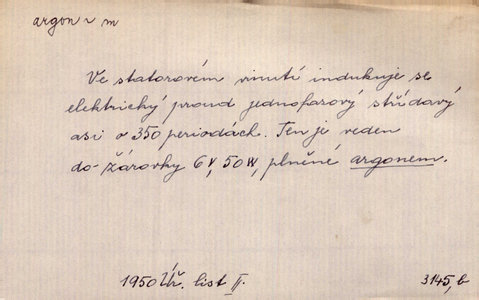 argon ~ m
Ve statorovém vinutí indukuje se
elektrický proud jednofasový střídavý
asi o 350 periodách. Ten je veden
do žárovky 6 V, 50 W, plněné argonem.
1950 Úř. list II.
3145, b